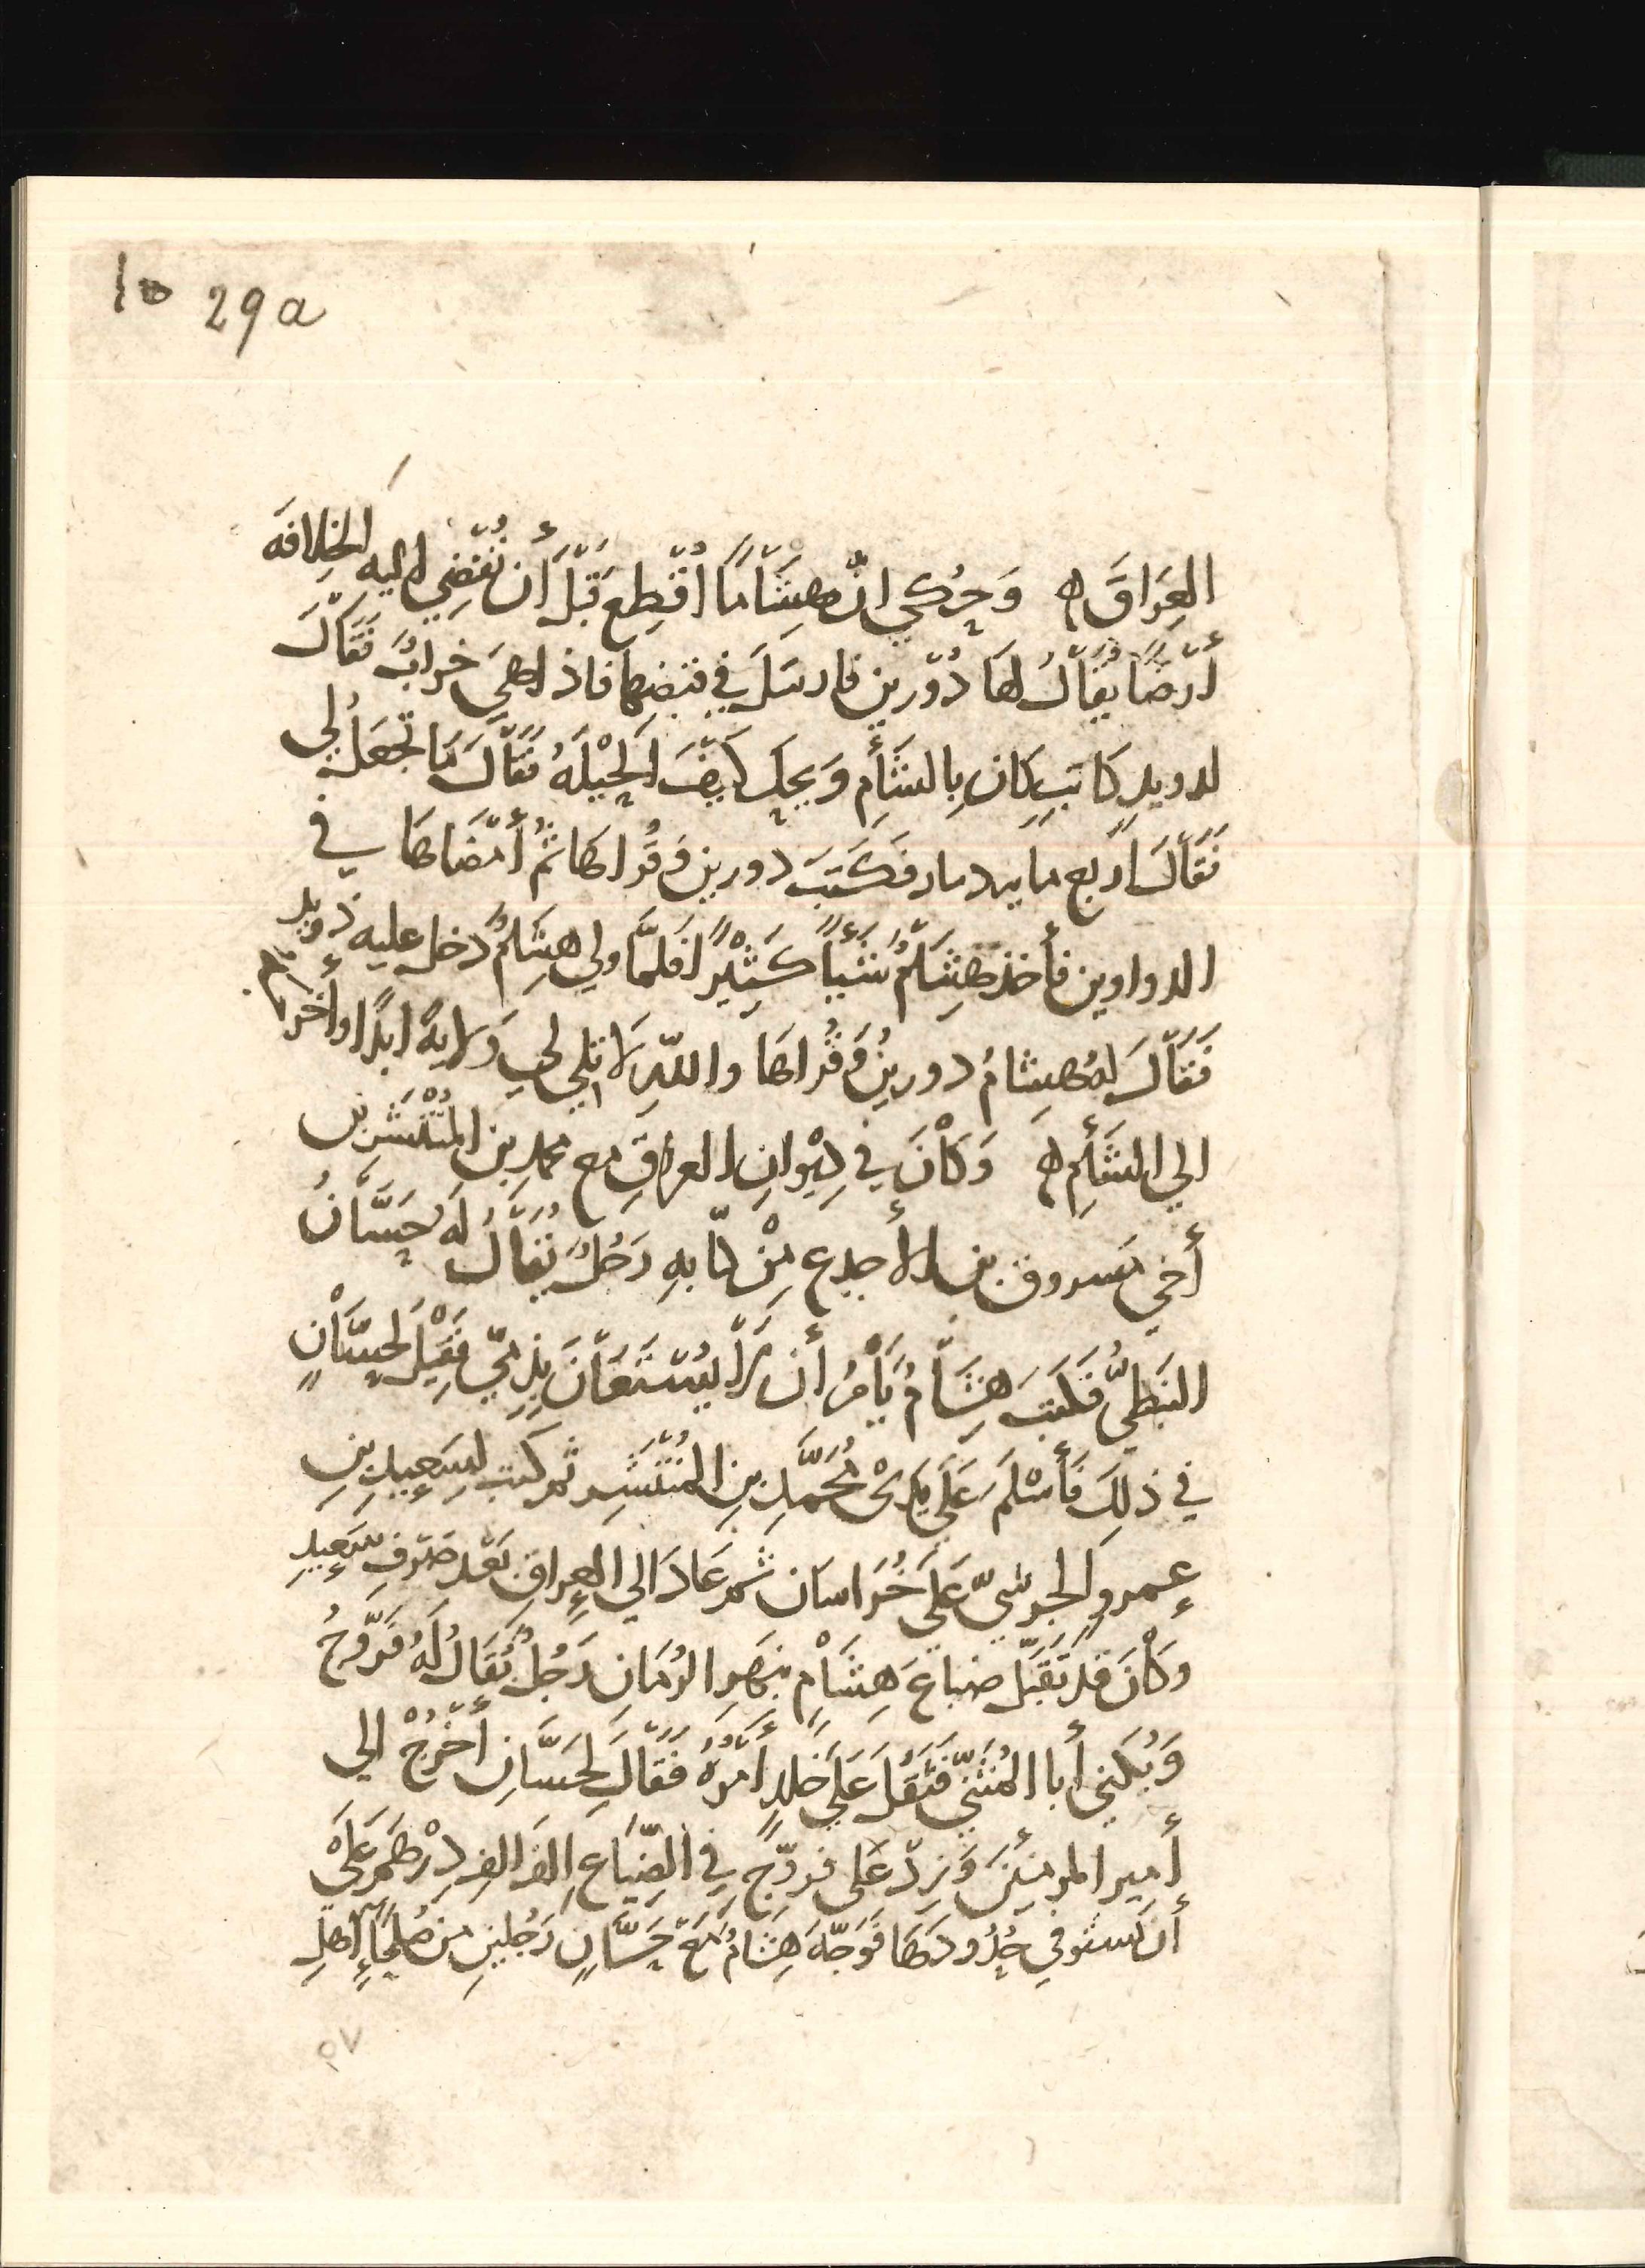 10 29a
العِرَاقَ ه وَحُكي انّ هِشَامًا اُقْطِع قَبْلَ أَن تُفْضِي اليه الخِلافَه
أَرْضًا يُقَالُ لَهَا دُوْرين فارسَلَ في قبضها فاذا هيَ خرابٌ فَقَالَ
لدويدٍ كَاتبٍ كان بِالشَأمِ وَيحك كَيْفَ الحِيْلَهُ فَقَالَ مَا تَجْعَلُ لي
فَقَالَ اربع مايه دينار فكَتَبَ دورين وَقُراهَا ثُمَّ أَمْضَاهَا في
الدواوين فأخذ هِشَامٌ شَيْأً كَثِيْرًا فَلمَّا ولي هشِامٌ دخل عليه ذويد
فَقَالَ لهُ هِشامُ دورينُ وَقُراهَا واللّهِ لَا تلي لي وَلَايهً ابدًا وأخرجه
الي الشَأمِ ه وَكَاْنَ في دِيْوانِ العراقِ مع محمدِ بن المُنْتَشِر بن
أخي مَسروق بن الأجدع مِنْ كتّابهِ رَجُلٌ يُقَالُ لهُ حَسَّانُ
النبَطيُّ فَكتبَ هِشَامٌ يَأْمُرُ أن لَا يُسْتَعَانَ بِذِمّيٍّ فَقِيْلَ لحسَّانٍ
في ذلِكَ فَأَسْلَمَ عَلَى يَدَيْ مُحَمَّدِ بنِ المُنْتَشِر ثم كتب لسَعِيدِ بنِ
عمروٍ الجرشيّ عَلَى خُرَاسَان ثم عَادَ الي العِراقِ بَعْد صَرْفِ سَعِيدٍ
وكَاْنَ قد تَقَبَّلَ ضياعَ هِشَامٍ بنهرِ الرُمَانِ رَجُلٌ يُقَالُ لَهُ فَرَّوخُ
وَيُكني أبا المُثَنّي فَثَقُلَ عَلَى خَلدٍ أَمْرُهُ فَقَالَ لِحَسَّانِ أُخْرُجْ الي
أَمير المومنِيْنَ وَزِدْ عَلى فروّخٍ في الضّيَاعِ الفَ الفِ دِرْهَمٍ عَلَىْ
أَن تستوفي حُدُودَهَا فَوَجَّهَ هِشَامُ مَعَ حَسَّانٍ رَجُلينِ من صُلحَاءِ أهلِ